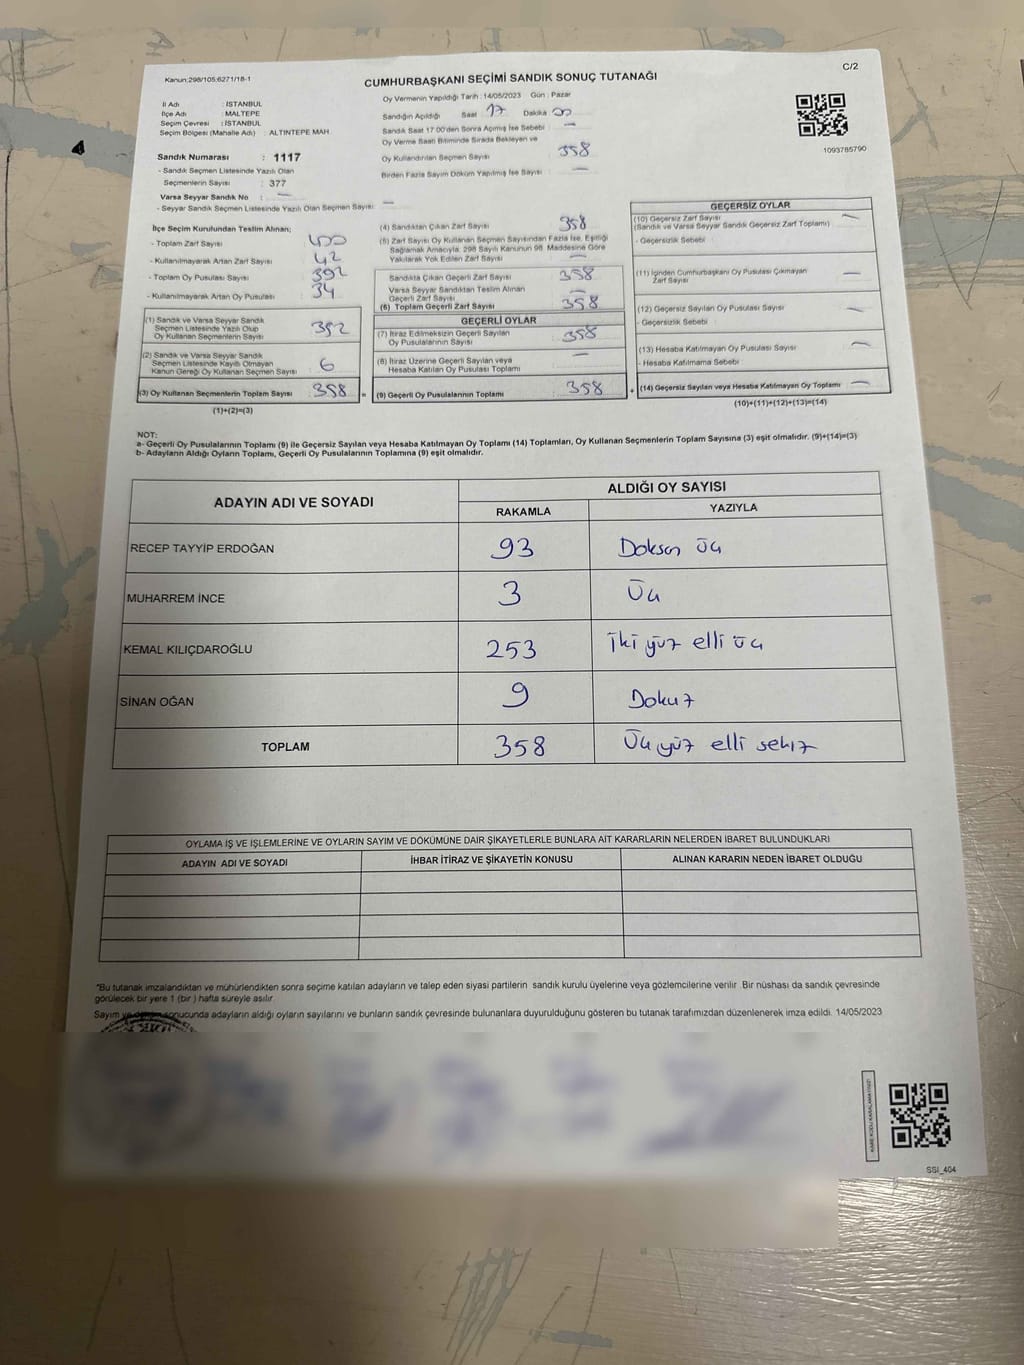 Kanun:298/105;6271/18-1
C/2
CUMHURBAŞKANI SEÇİMİ SANDIK SONUÇ TUTANAĞI
İl Adı : İSTANBUL
İlçe Adı : MALTEPE
Seçim Çevresi : İSTANBUL
Seçim Bölgesi (Mahalle Adı) : ALTINTEPE MAH.
Sandık Numarası : 1117
- Sandık Seçmen Listesinde Yazılı Olan
Seçmenlerin Sayısı : 377
Varsa Seyyar Sandık No : —
- Seyyar Sandık Seçmen Listesinde Yazılı Olan Seçmen Sayısı: —
Oy Vermenin Yapıldığı Tarih : 14/05/2023 Gün : Pazar
Sandığın Açıldığı Saat 17 Dakika 00
Sandık Saat 17:00'den Sonra Açılmış İse Sebebi : —
Oy Verme Saati Bitiminde Sırada Bekleyen ve
Oy Kullandırılan Seçmen Sayısı : 358
Birden Fazla Sayım Döküm Yapılmış İse Sayısı : —
1093785790
İlçe Seçim Kurulundan Teslim Alınan;
- Toplam Zarf Sayısı : 400
- Kullanılmayarak Artan Zarf Sayısı : 42
- Toplam Oy Pusulası Sayısı : 392
- Kullanılmayarak Artan Oy Pusulası : 34
(1) Sandık ve Varsa Seyyar Sandık
Seçmen Listesinde Yazılı Olup
Oy Kullanan Seçmenlerin Sayısı : 352
(2) Sandık ve Varsa Seyyar Sandık
Seçmen Listesinde Kayıtlı Olmayan
Kanun Gereği Oy Kullanan Seçmen Sayısı : 6
(3) Oy Kullanan Seçmenlerin Toplam Sayısı : 358
(1)+(2)=(3)
(4) Sandıktan Çıkan Zarf Sayısı : 358
(5) Zarf Sayısı Oy Kullanan Seçmen Sayısından Fazla İse, Eşitliği
Sağlamak Amacıyla; 298 Sayılı Kanunun 98. Maddesine Göre
Yakılarak Yok Edilen Zarf Sayısı : —
Sandıkta Çıkan Geçerli Zarf Sayısı : 358
Varsa Seyyar Sandıktan Teslim Alınan
Geçerli Zarf Sayısı : —
(6) Toplam Geçerli Zarf Sayısı : 358
GEÇERLİ OYLAR
(7) İtiraz Edilmeksizin Geçerli Sayılan
Oy Pusulasının Sayısı : 358
(8) İtiraz Üzerine Geçerli Sayılan veya
Hesaba Katılan Oy Pusulası Toplamı : —
= (9) Geçerli Oy Pusulalarının Toplamı : 358 +
GEÇERSİZ OYLAR
(10) Geçersiz Zarf Sayısı : —
(Sandık ve Varsa Seyyar Sandık Geçersiz Zarf Toplamı)
- Geçersizlik Sebebi :
(11) İçinden Cumhurbaşkanı Oy Pusulası Çıkmayan
Zarf Sayısı : —
(12) Geçersiz Sayılan Oy Pusulası Sayısı : —
- Geçersizlik Sebebi :
(13) Hesaba Katılmayan Oy Pusulası Sayısı : —
- Hesaba Katılmama Sebebi :
(14) Geçersiz Sayılan veya Hesaba Katılmayan Oy Toplamı : —
(10)+(11)+(12)+(13)=(14)
NOT:
a- Geçerli Oy Pusulalarının Toplamı (9) ile Geçersiz Sayılan veya Hesaba Katılmayan Oy Toplamı (14) Toplamları, Oy Kullanan Seçmenlerin Toplam Sayısına (3) eşit olmalıdır. (9)+(14)=(3)
b- Adayların Aldığı Oyların Toplamı, Geçerli Oy Pusulalarının Toplamına (9) eşit olmalıdır.
ADAYIN ADI VE SOYADI
ALDIĞI OY SAYISI
RAKAMLA YAZIYLA
RECEP TAYYİP ERDOĞAN 93 Doksan üç
MUHARREM İNCE 3 Üç
KEMAL KILIÇDAROĞLU 253 İki yüz elli üç
SİNAN OĞAN 9 Dokuz
TOPLAM 358 Üç yüz elli sekiz
OYLAMA İŞ VE İŞLEMLERİNE VE OYLARIN SAYIM VE DÖKÜMÜNE DAİR ŞİKAYETLERLE BUNLARA AİT KARARLARIN NELERDEN İBARET BULUNDUKLARI
ADAYIN ADI VE SOYADI İHBAR İTİRAZ VE ŞİKAYETİN KONUSU ALINAN KARARIN NEDEN İBARET OLDUĞU
*Bu tutanak imzalandıktan ve mühürlendikten sonra seçime katılan adayların ve talep eden siyasi partilerin sandık kurulu üyelerine veya gözlemcilerine verilir. Bir nüshası da sandık çevresinde
görülecek bir yere 1 (bir) hafta süreyle asılır.
Sayım ve döküm sonucunda adayların aldığı oyların sayılarını ve bunların sandık çevresinde bulunanlara duyurulduğunu gösteren bu tutanak tarafımızdan düzenlenerek imza edildi. 14/05/2023
SSI_404